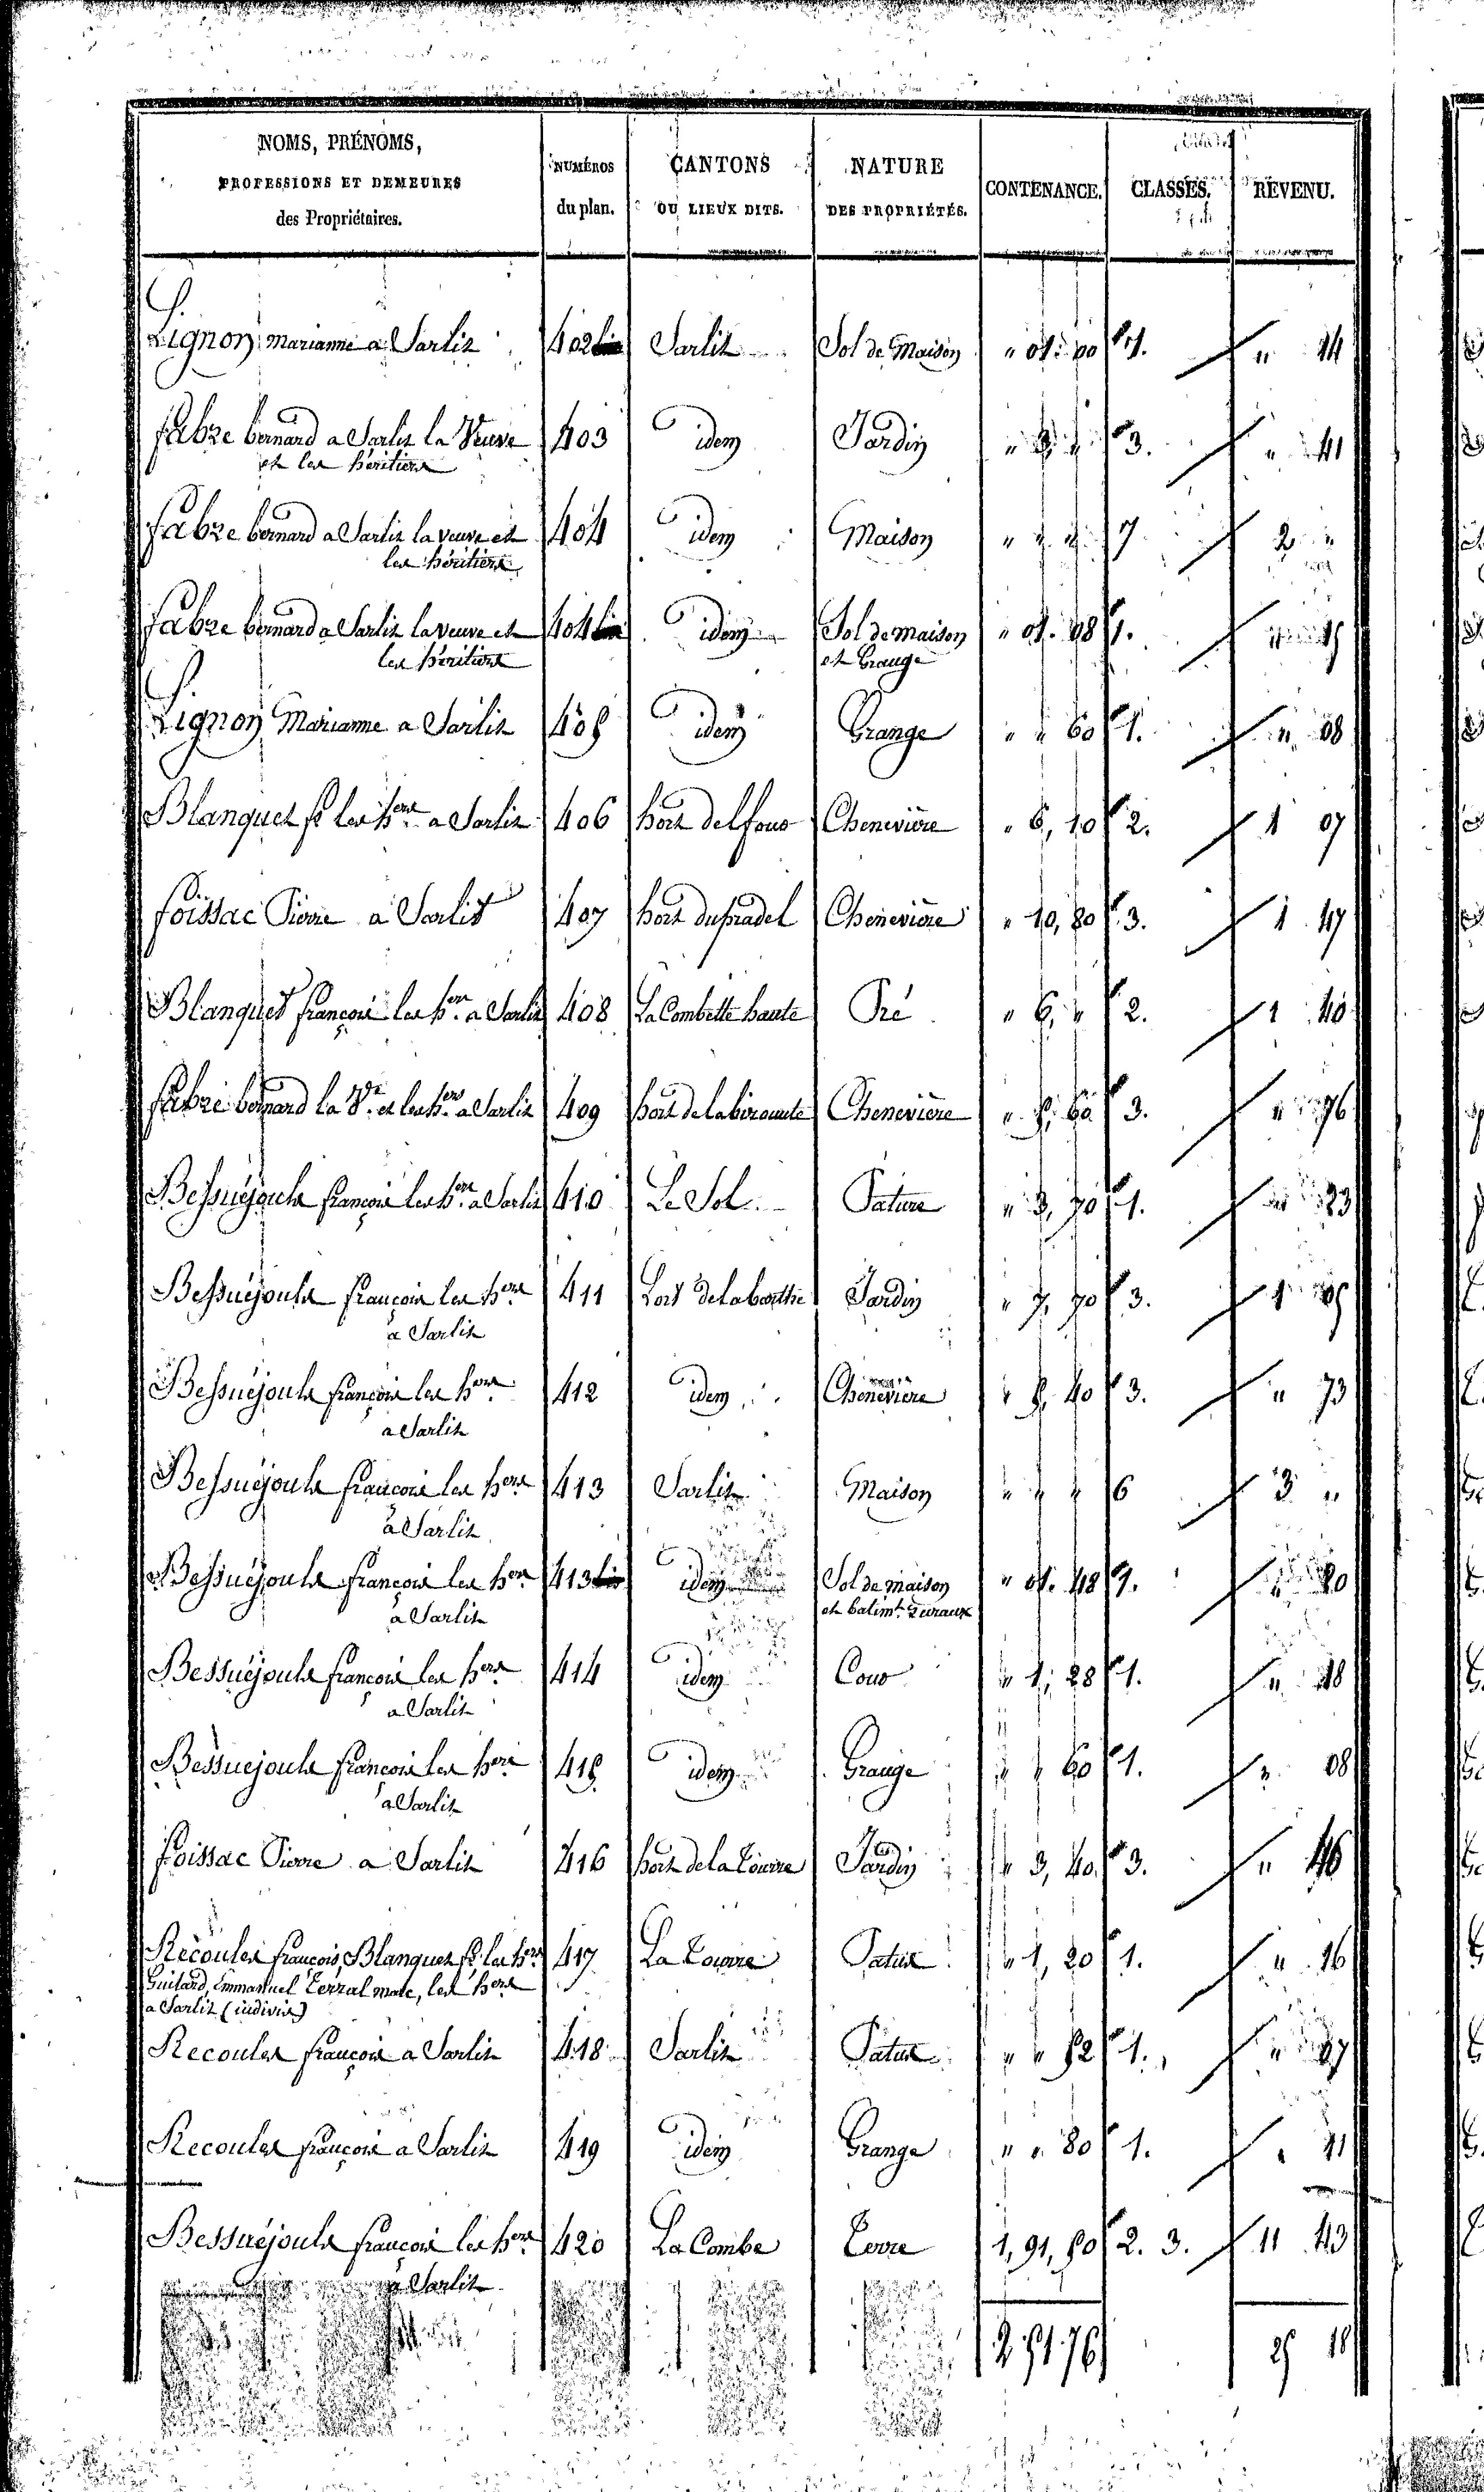 NOMS, PRÉNOMS, PROFESSIONS ET DEMEURES des Propriétaires. | NUMÉROS du plan. | CANTONS OU LIEUX DITS. | NATURE DES PROPRIÉTÉS. | CONTENANCE. | CLASSES. | REVENU.
Lignon marianne a Sarlit | 402 bis | Sarlit | Sol de Maison | " 01. 00 | 1. | " 14
fabre bernard a Sarlit la Veuve | 403 | idem | Jardin | " 3, " | 3. | " 41
et les héritiers
fabre bernard a Sarlit la veuve et | 404 | idem | Maison | " " " | 7 | 2 "
les héritiers
fabre bernard a Sarlit la veuve et | 404 bis | idem | Sol de maison | " 01. 08 | 1. | " 15
les héritiers | et Grange
Lignon Marianne a Sarlit | 405 | idem | Grange | " " 60 | 1. | " 08
Blanquet fs les hers a Sarlit | 406 | hort delfour | Chenevière | " 6, 10 | 2. | 1 07
foissac Pierre a Sarlit | 407 | hort dupradel | Chenevière | " 10, 80 | 3. | 1 47
Blanquet françois les hers a Sarlit | 408 | La Combette haute | Pré | " 6, " | 2. | 1 40
fabre bernard la Ve et les hers a Sarlit | 409 | hort de | Chenevière | " 5, 60 | 3. | " 76
Bessuéjouls françois les hers a Sarlit | 410 | Le Sol | Pature | " 3, 70 | 1. | " 23
Bessuéjouls françois les hers | 411 | Lort delabarthe | Jardin | " 7, 70 | 3. | 1 05
a Sarlit
Bessuéjouls françois les hers | 412 | idem | Chenevière | " 5, 40 | 3. | " 73
a Sarlit
Bessuéjouls françois les hers | 413 | Sarlit | Maison | " " " | 6 | 3 "
à Sarlit
Bessuéjouls françois les hers | 413 bis | idem | Sol de maison | " 01. 48 | 1. | " 20
à Sarlit | et batimts ruraux
Bessuéjouls françois les hers | 414 | idem | Cour | " 1, 28 | 1. | " 18
a Sarlit
Bessuejouls françois les hers | 415 | idem | Grange | " " 60 | 1. | " 08
a Sarlit
foissac Pierre a Sarlit | 416 | hort de la | Jardin | " 3, 40 | 3. | " 46
Recoules françois, Blanquet fs les hers | 417 | La | Pature | " 1, 20 | 1. | " 16
Guitard, Emmanuel Terral marc, les hers
a Sarlit (indivis)
Recoules françois a Sarlit | 418 | Sarlit | Pature | " " 52 | 1. | " 07
Recoules françois a Sarlit | 419 | idem | Grange | " " 80 | 1. | " 11
Bessuéjouls françois les hers | 420 | La Combe | Terre | 1, 91, 50 | 2. 3. | 11 43
a Sarlit
2 51 76 | 25 18